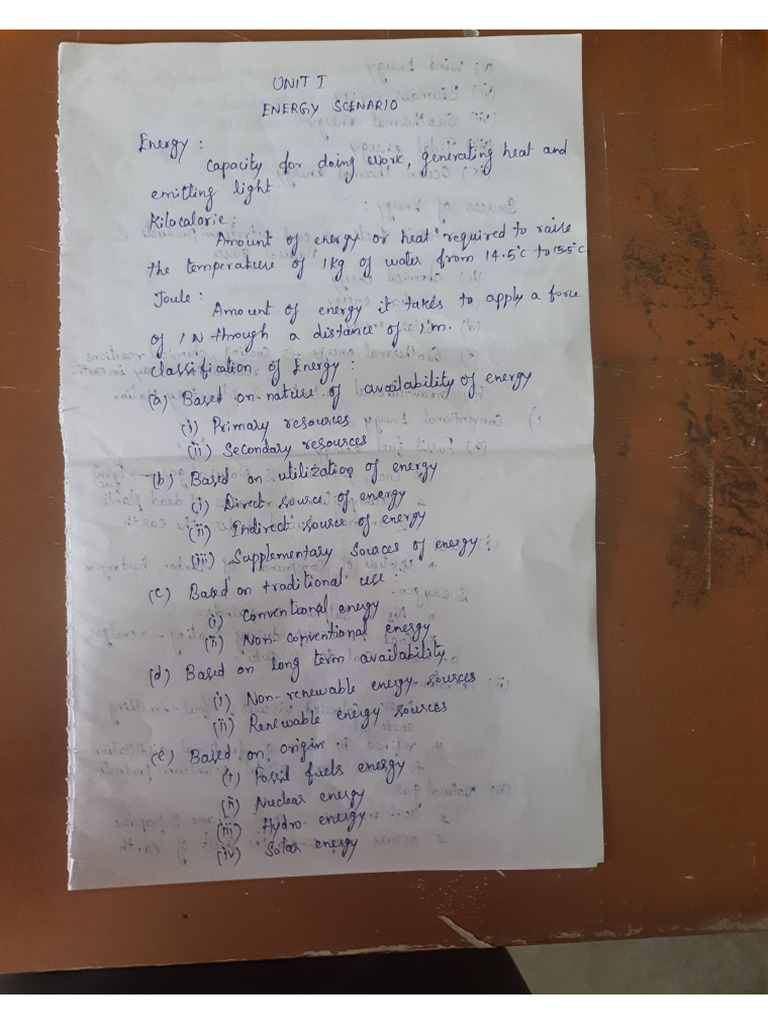 UNIT I
ENERGY SCENARIO
Energy :
Capacity for doing work, generating heat and
emitting light
Kilocalorie :
Amount of energy or heat required to raise
the temperature of 1kg of water from 14.5°C to 15.5°C
Joule :
Amount of energy it takes to apply a force
of 1 N through a distance of 1 m.
Classification of Energy :
(a) Based on nature of availability of energy
(i) Primary resources
(ii) Secondary resources
(b) Based on utilization of energy
(i) Direct source of energy
(ii) Indirect source of energy
(iii) Supplementary Sources of energy
(c) Based on traditional use :
(i) Conventional energy
(ii) Non-conventional energy
(d) Based on long term availability.
(i) Non-renewable energy sources
(ii) Renewable energy sources
(e) Based on origin
(i) Fossil fuels energy
(ii) Nuclear energy
(iii) Hydro energy
(iv) Solar energy